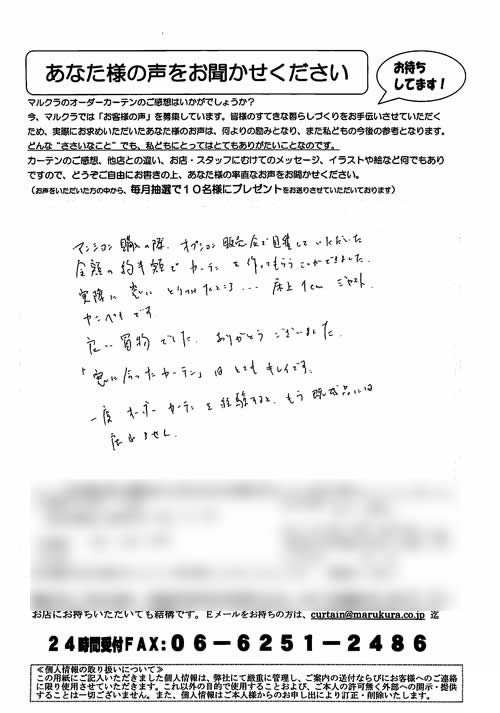 あなた様の声をお聞かせください
お待ち
してます！
マルクラのオーダーカーテンのご感想はいかがでしょうか？
今、マルクラでは「お客様の声」を募集しています。皆様のすてきな暮らしづくりをお手伝いさせていただく
ため、実際にお求めいただいたあなた様のお声は、何よりの励みとなり、また私どもの今後の参考となります。
どんな“ささいなこと”でも、私どもにとってはとてもありがたいことなのです。
カーテンのご感想、他店との違い、お店・スタッフにむけてのメッセージ、イラストや絵など何でもあり
ですので、どうぞご自由にお書きの上、あなた様の率直なお声をお聞かせください。
（お声をいただいた方の中から、毎月抽選で１０名様にプレゼントをお送りさせていただいております）
マンション購入の際、オプション販売会で見積していただいた
金額の約半額でカーテンを作ってもらうことができました。
実際に窓にとりつけたところ... 床上1cm ジャスト.
カンペキです
良い買物でした. ありがとうございました.
「窓に合ったカーテン」はとてもキレイです.
一度オーダーカーテンを経験すると、もう既成品には
戻れません.
お店にお持ちいただいても結構です。Ｅメールをお持ちの方は、curtain@marukura.co.jp 迄
２４時間受付ＦＡＸ：０６－６２５１－２４８６
≪個人情報の取り扱いについて≫
この用紙にご記入いただきました個人情報は、弊社にて厳重に管理し、ご案内の送付ならびにお客様へのご連絡
に限り使用させていただきます。これ以外の目的で使用することおよび、ご本人の許可無く外部への開示・提供
することは一切ございません。また、個人情報はご本人様からのお申し出により訂正・削除いたします。